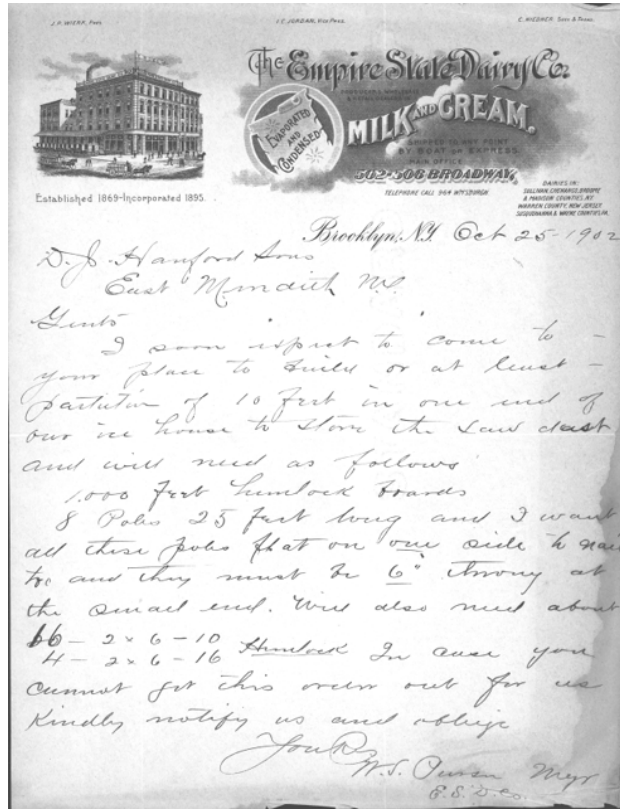 J. F. WIERP, PRES.
J. C. JORDAN, VICE PRES.
C. WIEBNER. SECY & TREAS.
The Empire State Dairy Co.
PRODUCERS, WHOLESALE
& RETAIL DEALERS IN
MILK AND CREAM.
EVAPORATED
AND
CONDENSED
SHIPPED TO ANY POINT
BY BOAT OR EXPRESS.
MAIN OFFICE
502-506 BROADWAY,
TELEPHONE CALL 964 WMSBURGH.
DAIRIES IN:
SULLIVAN, CHENANGO, BROOME
& MADISON COUNTIES, N.Y.
WARREN COUNTY, NEW JERSEY.
SUSQUEHANNA & WAYNE COUNTIES, PA.
Established 1869-Incorporated 1895.
Brooklyn, N.Y. Oct 25-1902
D. J. Hanford Sons
East Meridith N.Y.
Gents
I soon expect to come to -
your place to build or at least -
partition of 10 feet in one end of
our ice house to store the saw dust
and will need as follows
1,000 feet hemlock boards
8 Poles 25 feet long and I want
all these poles flat on one side to nail
to and they must be 6" strong at
the small end. Will also need about
16 - 2 x 6 - 10
4 - 2 x 6 - 16 Hemlock In case you
cannot get this order out for us
Kindly notify us and oblige
Yours
W. S. Mgr
E. S. D. Co.